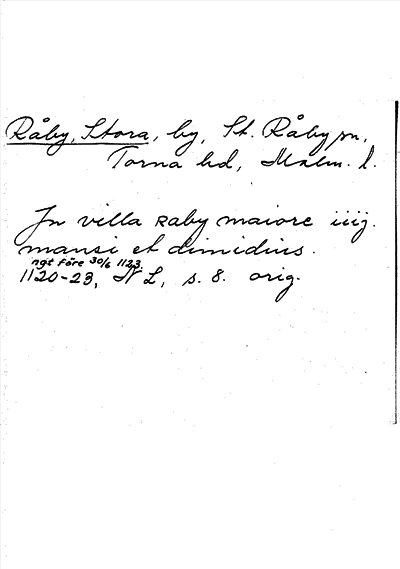 Råby, Stora, by, St. Råby sn,
Torna hd, Malm. l.
In villa Raby maiore iiij.
mansi et dimidius.
ngt före 30/6 1123.
1120-23, NL, s. 8. orig.